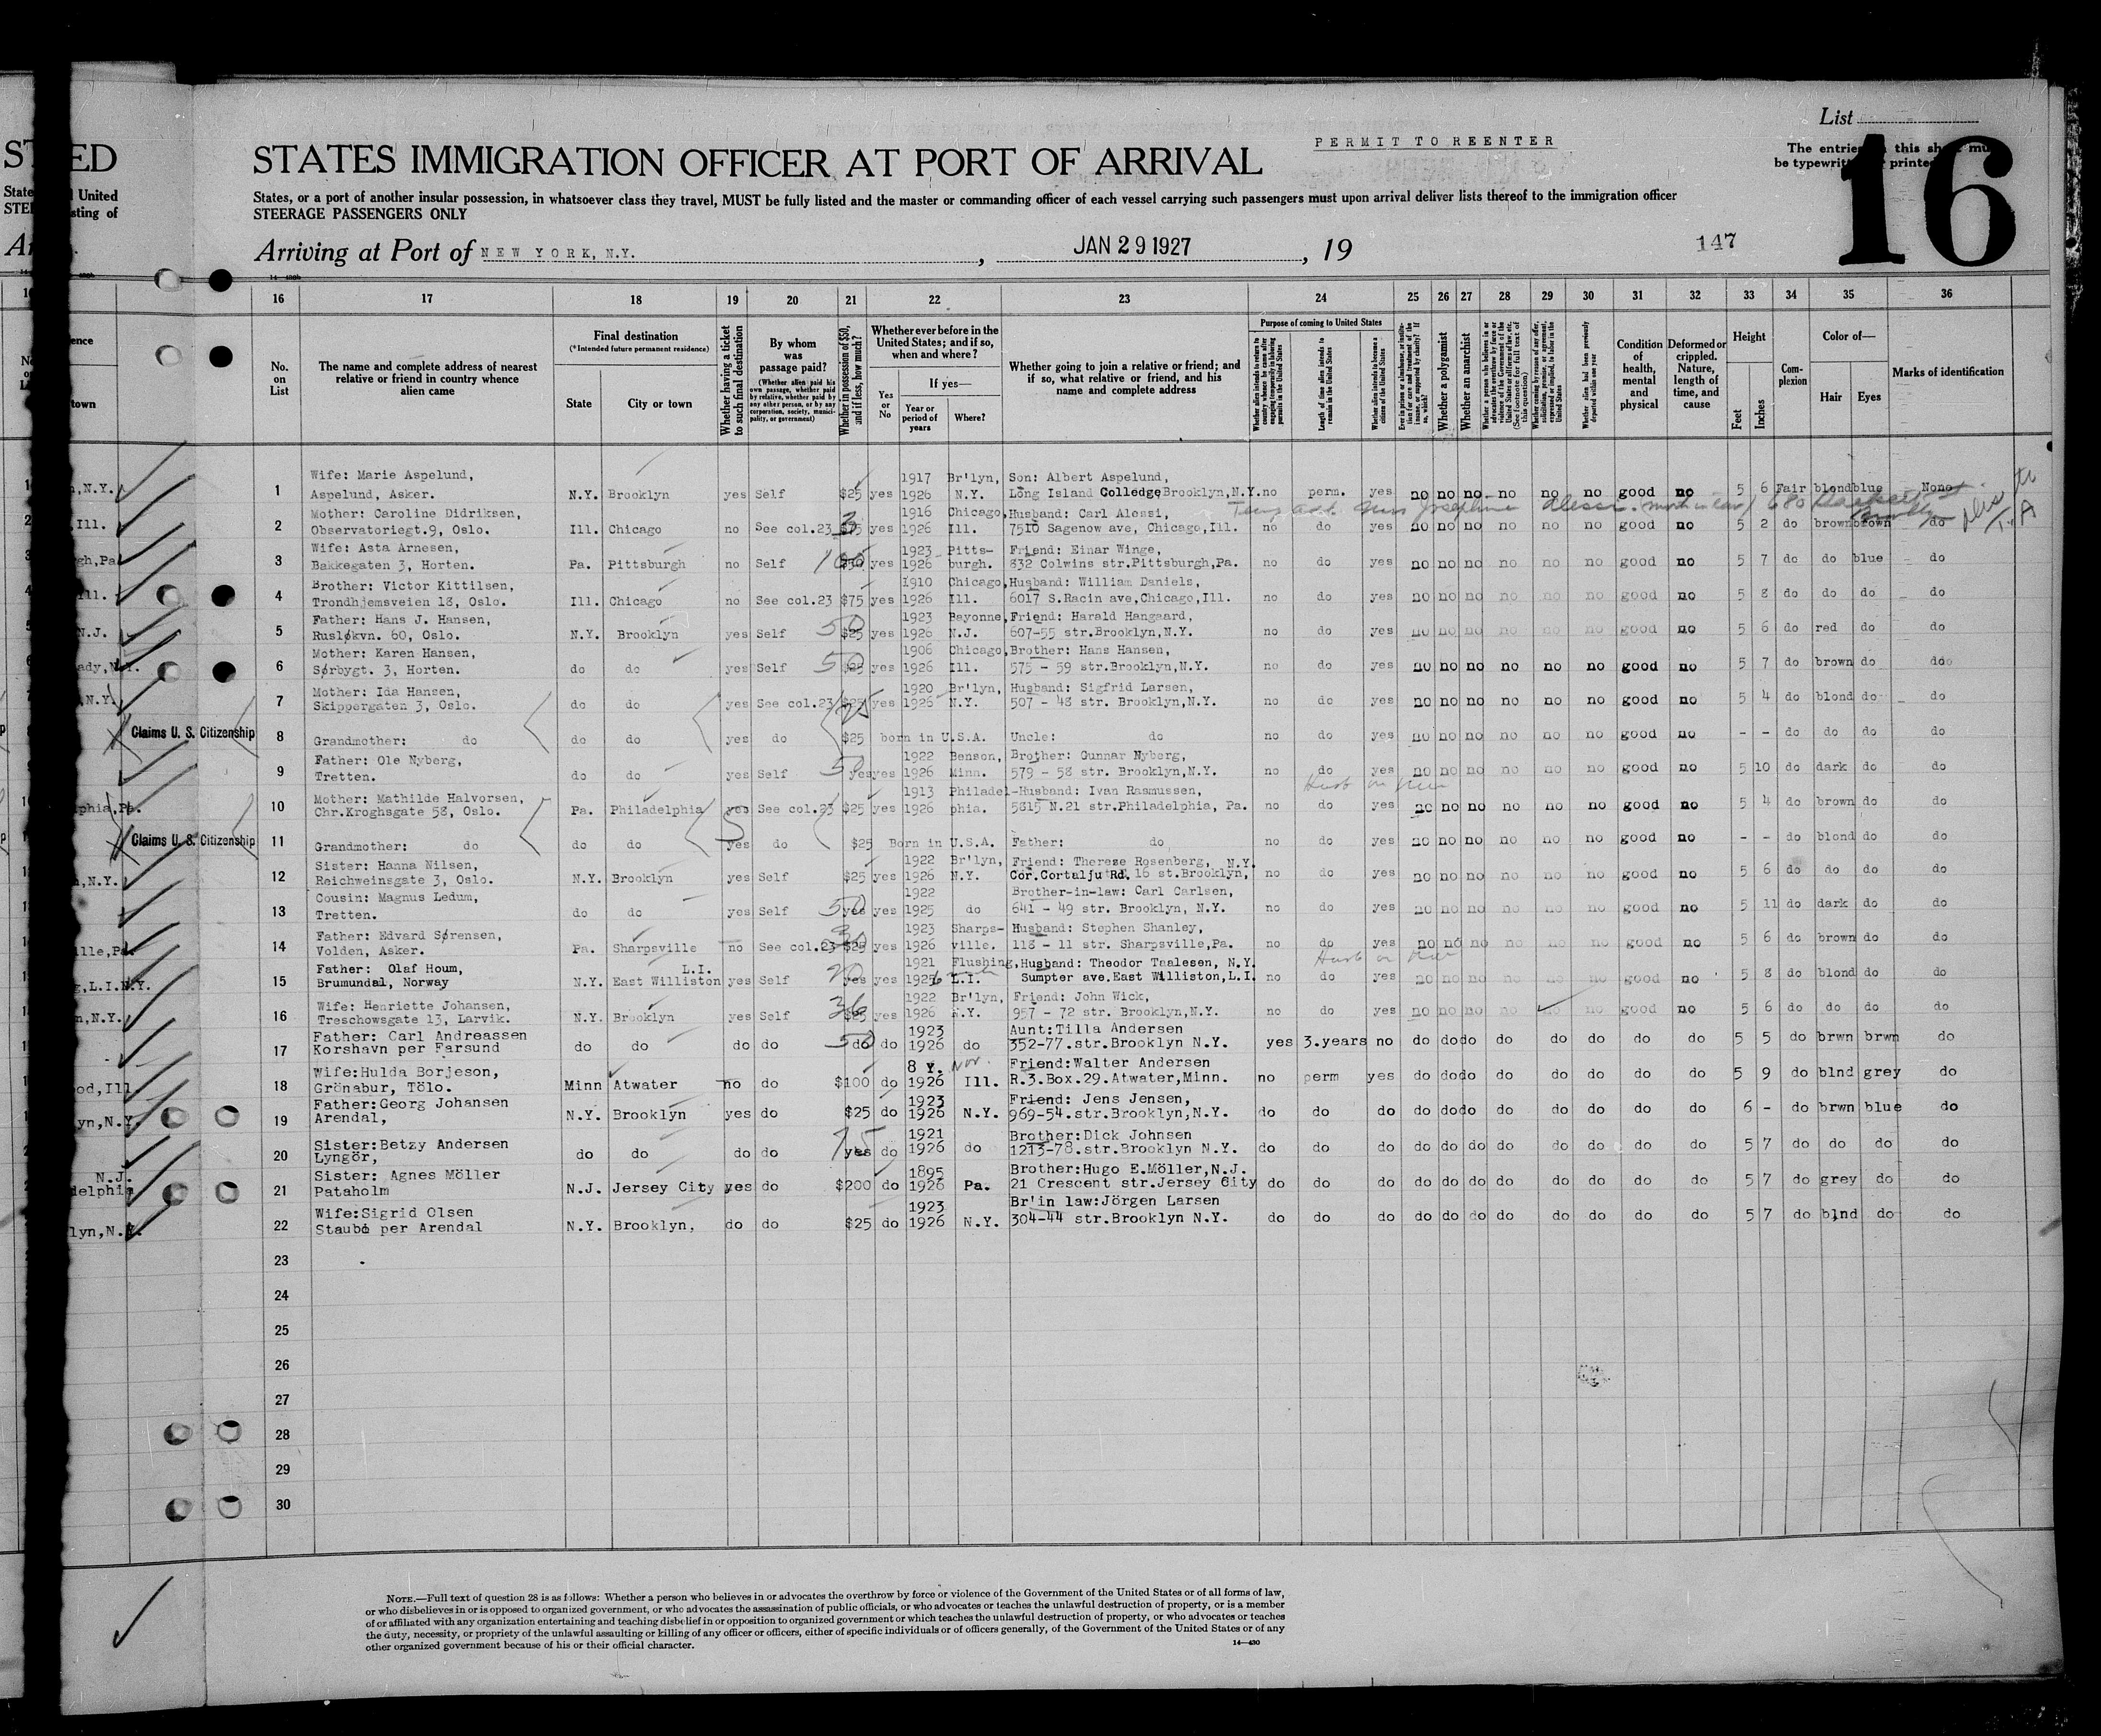 PERMIT TO REENTER
List
ED
STATES IMMIGRATION OFFICER AT PORT OF ARRIVAL
The entries
be typewrit
16
United
States, or a port of another insular possession, in whatsoever class they travel, MUST be fully listed and the master or commanding officer of each vessel carrying such passengers must upon arrival deliver lists thereof to the immigration officer
sting of
STEERAGE PASSENGERS ONLY
Arriving at Port of NEW YORK, N.Y. , JAN 29 1927 , 19 147
16 17 18 19 20 21 22 23 24 25 26 27 28 29 30 31 32 33 34 35 36
No. on List
The name and complete address of nearest relative or friend in country whence alien came
Final destination
(*Intended future permanent residence)
State City or town
Whether having a ticket to such final destination
By whom was passage paid?
(Whether alien paid his own passage, whether paid by relative, whether paid by any other person, or by any corporation, society, municipality, or government)
Whether in possession of $50, and if less, how much?
Whether ever before in the United States; and if so, when and where?
Yes or No
If yes—
Year or period of years Where?
Whether going to join a relative or friend; and if so, what relative or friend, and his name and complete address
Purpose of coming to United States
Length of time alien intends to remain in the United States
Whether alien intends to become a citizen of the United States
Whether a polygamist
Whether an anarchist
Whether alien had been previously deported within one year
Condition of health, mental and physical
Deformed or crippled. Nature, length of time, and cause
Height
Feet Inches
Complexion
Color of—
Hair Eyes
Marks of identification
1 Wife: Marie Aspelund, 1917 Br'lyn, Son: Albert Aspelund,
Aspelund, Asker. N.Y. Brooklyn yes Self $25 yes 1926 N.Y. Long Island Colledge Brooklyn,N.Y. no perm. yes no no no no no no good no 5 6 Fair blond blue None
2 Mother: Caroline Didriksen, 1916 Chicago, Husband: Carl Alessi,
Observatoriegt.9, Oslo. Ill. Chicago no See col.23 yes 1926 Ill. 7510 Sagenow ave, Chicago,Ill. no do yes no no no no no no good no 5 2 do brown brown do
3 Wife: Asta Arnesen, 1923 Pitts- Friend: Einar Winge,
Bakkegaten 3, Horten. Pa. Pittsburgh no Self yes 1926 burgh. 832 Colwins str.Pittsburgh,Pa. no do yes no no no no no no good no 5 7 do do blue do
4 Brother: Victor Kittilsen, 1910 Chicago, Husband: William Daniels,
Trondhjemsveien 18, Oslo. Ill. Chicago no See col.23 $75 yes 1926 Ill. 6017 S.Racin ave,Chicago,Ill. no do yes no no no no no no good no 5 8 do do do do
5 Father: Hans J. Hansen, 1923 Beyonne, Friend: Harald Hangaard,
Rusløkvn. 60, Oslo. N.Y. Brooklyn yes Self 50 $25 yes 1926 N.J. 607-55 str.Brooklyn,N.Y. no do yes no no no no no no good no 5 6 do red do do
6 Mother: Karen Hansen, 1906 Chicago, Brother: Hans Hansen,
Sørbygt. 3, Horten. do do yes Self 50 $25 yes 1926 Ill. 575 - 59 str.Brooklyn,N.Y. no do yes no no no no no no good no 5 7 do brown do do
7 Mother: Ida Hansen, 1920 Br'lyn, Husband: Sigfrid Larsen,
Skippergaten 3, Oslo. do do yes See col.23 yes 1926 N.Y. 507 - 48 str. Brooklyn,N.Y. no do yes no no no no no no good no 5 4 do blond do do
Claims U. S. Citizenship
8 Grandmother: do do do yes do $25 born in U.S.A. Uncle: do no do yes no no no no no no good no - - do do do do
9 Father: Ole Nyberg, 1922 Benson, Brother: Gunnar Nyberg,
Tretten. do do yes Self 50 yes yes 1926 Minn. 579 - 58 str. Brooklyn,N.Y. no do yes no no no no no no good no 5 10 do dark do do
10 Mother: Mathilde Halvorsen, 1913 Philadel- Husband: Ivan Rasmussen,
Chr.Kroghsgate 58, Oslo. Pa. Philadelphia yes See col.23 $25 yes 1926 phia. 5815 N.21 str.Philadelphia, Pa. no do yes no no no no no no good no 5 4 do brown do do
Claims U. S. Citizenship
11 Grandmother: do do do yes do $25 Born in U.S.A. Father: do no do yes no no no no no no good no - - do blond do do
12 Sister: Hanna Nilsen, 1922 Br'lyn, Friend: Therese Rosenberg, N.Y.
Reichweinsgate 3, Oslo. N.Y. Brooklyn yes Self $25 yes 1926 N.Y. Cor.Cortalju Rd. 16 st.Brooklyn, no do yes no no no no no no good no 5 6 do do do do
13 Cousin: Magnus Ledum, 1922 Brother-in-law: Carl Carlsen,
Tretten. do do yes Self 50 yes yes 1925 do 641 - 49 str. Brooklyn, N.Y. no do yes no no no no no no good no 5 11 do dark do do
14 Father: Edvard Sørensen, 1923 Sharps- Husband: Stephen Shanley,
Volden, Asker. Pa. Sharpsville no See col.23 $25 yes 1926 ville. 118 - 11 str. Sharpsville,Pa. no do yes no no no no no no good no 5 6 do brown do do
15 Father: Olaf Houm, L.I. 1921 Flushing, Husband: Theodor Taalesen, N.Y.
Brumundal, Norway N.Y. East Williston yes Self yes yes 1925 L.I. Sumpter ave.East Williston,L.I. no do yes no no no no no no good no 5 8 do blond do do
16 Wife: Henriette Johansen, 1922 Br'lyn, Friend: John Wick,
Treschowsgate 13, Larvik. N.Y. Brooklyn yes Self yes 1926 N.Y. 957 - 72 str. Brooklyn,N.Y. no do yes no no no no no no good no 5 6 do do do do
17 Father: Carl Andreassen 1923 Aunt:Tilla Andersen
Korshavn per Farsund do do do do 50 do do 1926 do 352-77.str.Brooklyn N.Y. yes 3.years no do do do do do do do do 5 5 do brwn brwn do
18 Wife:Hulda Borjeson, 8 Y. Nov. Friend:Walter Andersen
Grönabur, Tölo. Minn Atwater no do $100 do 1926 Ill. R.3.Box.29.Atwater,Minn. no perm yes do do do do do do do do 5 9 do blnd grey do
19 Father:Georg Johansen 1923 Friend: Jens Jensen,
Arendal, N.Y. Brooklyn yes do $25 do 1926 N.Y. 969-54.str.Brooklyn,N.Y. do do do do do do do do do do do 6 - do brwn blue do
20 Sister:Betzy Andersen 1921 Brother:Dick Johnsen
Lyngör, do do do do 75 yes do 1926 do 1213-78.str.Brooklyn N.Y. do do do do do do do do do do do 5 7 do do do do
21 Sister: Agnes Möller 1895 Brother:Hugo E.Möller,N.J.
Pataholm N.J. Jersey City yes do $200 do 1926 Pa. 21 Crescent str.Jersey City do do do do do do do do do do do 5 7 do grey do do
22 Wife:Sigrid Olsen 1923 Br'in law:Jörgen Larsen
Staubø per Arendal N.Y. Brooklyn, do do $25 do 1926 N.Y. 304-44 str.Brooklyn N.Y. do do do do do do do do do do do 5 7 do blnd do do
23
24
25
26
27
28
29
30
NOTE.—Full text of question 28 is as follows: Whether a person who believes in or advocates the overthrow by force or violence of the Government of the United States or of all forms of law,
or who disbelieves in or is opposed to organized government, or who advocates the assassination of public officials, or who advocates or teaches the unlawful destruction of property, or is a member
of or affiliated with any organization entertaining and teaching disbelief in or opposition to organized government or which teaches the unlawful destruction of property, or who advocates or teaches
the duty, necessity, or propriety of the unlawful assaulting or killing of any officer or officers, either of specific individuals or of officers generally, of the Government of the United States or of any
other organized government because of his or their official character.
14—430